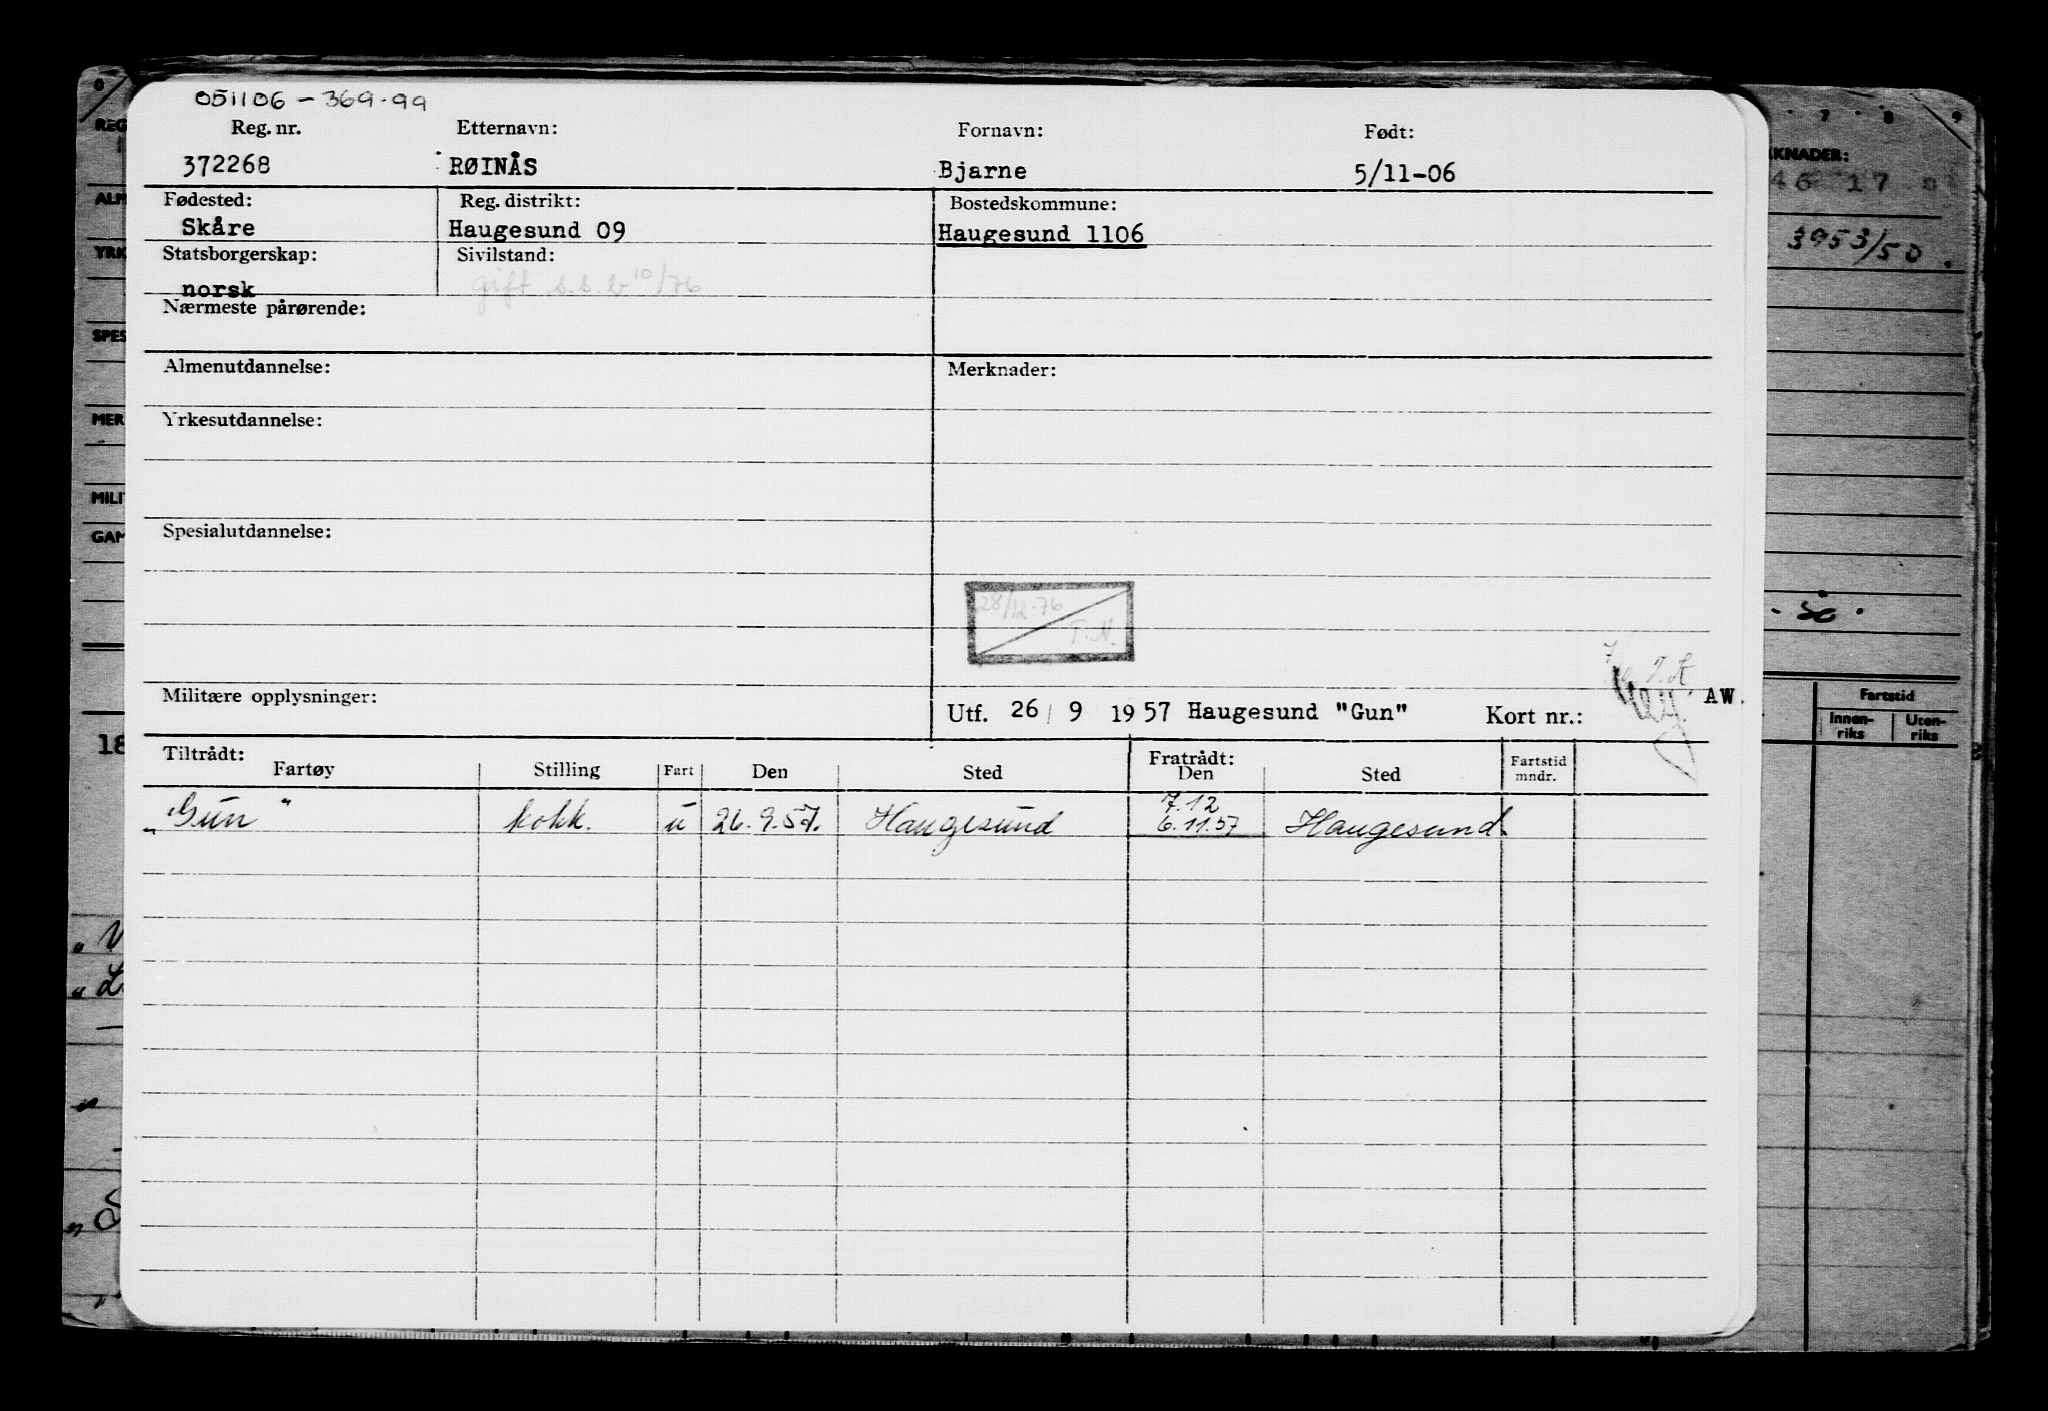 051106-369.99
Reg. nr. Etternavn: Fornavn: Født:
372268 RØINÅS Bjarne 5/11-06
Fødested: Reg. distrikt: Bostedskommune:
Skåre Haugesund 09 Haugesund 1106
Statsborgerskap: Sivilstand:
norsk gift s.s.b 10/76
Nærmeste pårørende:
Almenutdannelse: Merknader:
Yrkesutdannelse:
Spesialutdannelse:
28/12-76
T.N.
Militære opplysninger:
Utf. 26 / 9 1957 Haugesund "Gun" Kort nr.: AW.
Tiltrådt: Fratrådt:
Fartøy Stilling Fart Den Sted Den Sted Fartstid mndr.
7.12
"Gun" kokk. u 26.9.57. Haugesund 6.11.57 Haugesund
REG
ALM
YRK
SPES
MER
MILIT
GAM
18
7 8 9
KNADER:
46 17 0
3953/50.
Fartstid
Innen-riks Uten-riks